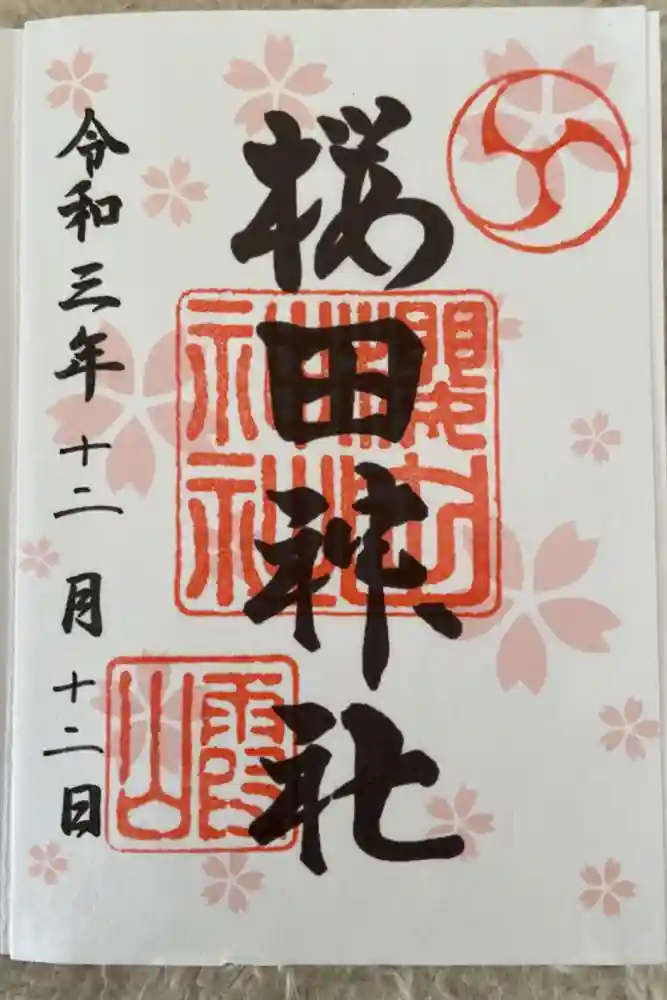 桜田神社
令和三年十二月十二日
霞山